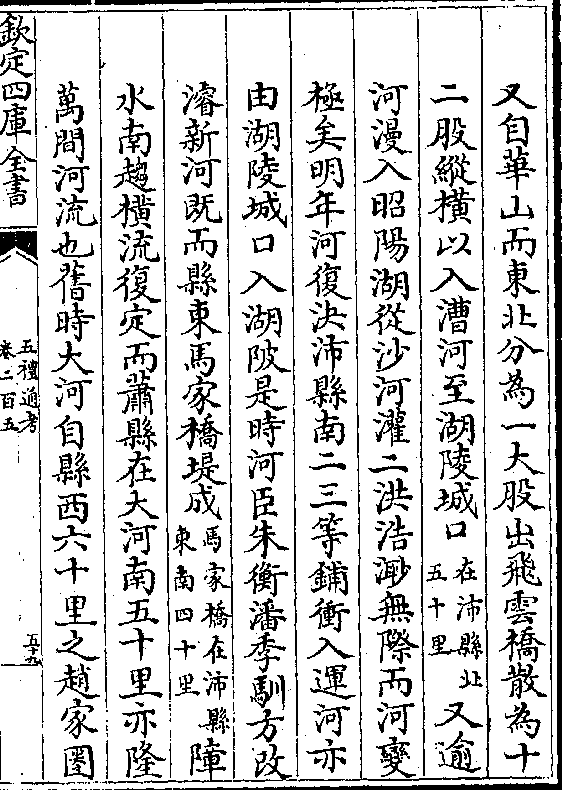 又自華山而東北分為一大股出飛雲橋散為十
二股縱橫以入漕河至湖陵城口在沛縣北五十里又逾
河漫入昭陽湖從沙河灌二洪浩渺無際而河變
極矣明年河復決沛縣南二三等鋪衝入運河亦
由湖陵城口入湖陂是時河臣朱衡潘季馴方改
濬新河既而縣東馬家橋堤成馬家橋在沛縣東南四十里障
水南趨橫流復定而蕭縣在大河南五十里亦隆
萬間河流也舊時大河自縣西六十里之趙家圏
欽定四庫全書
五禮通考
卷二百五
五十九